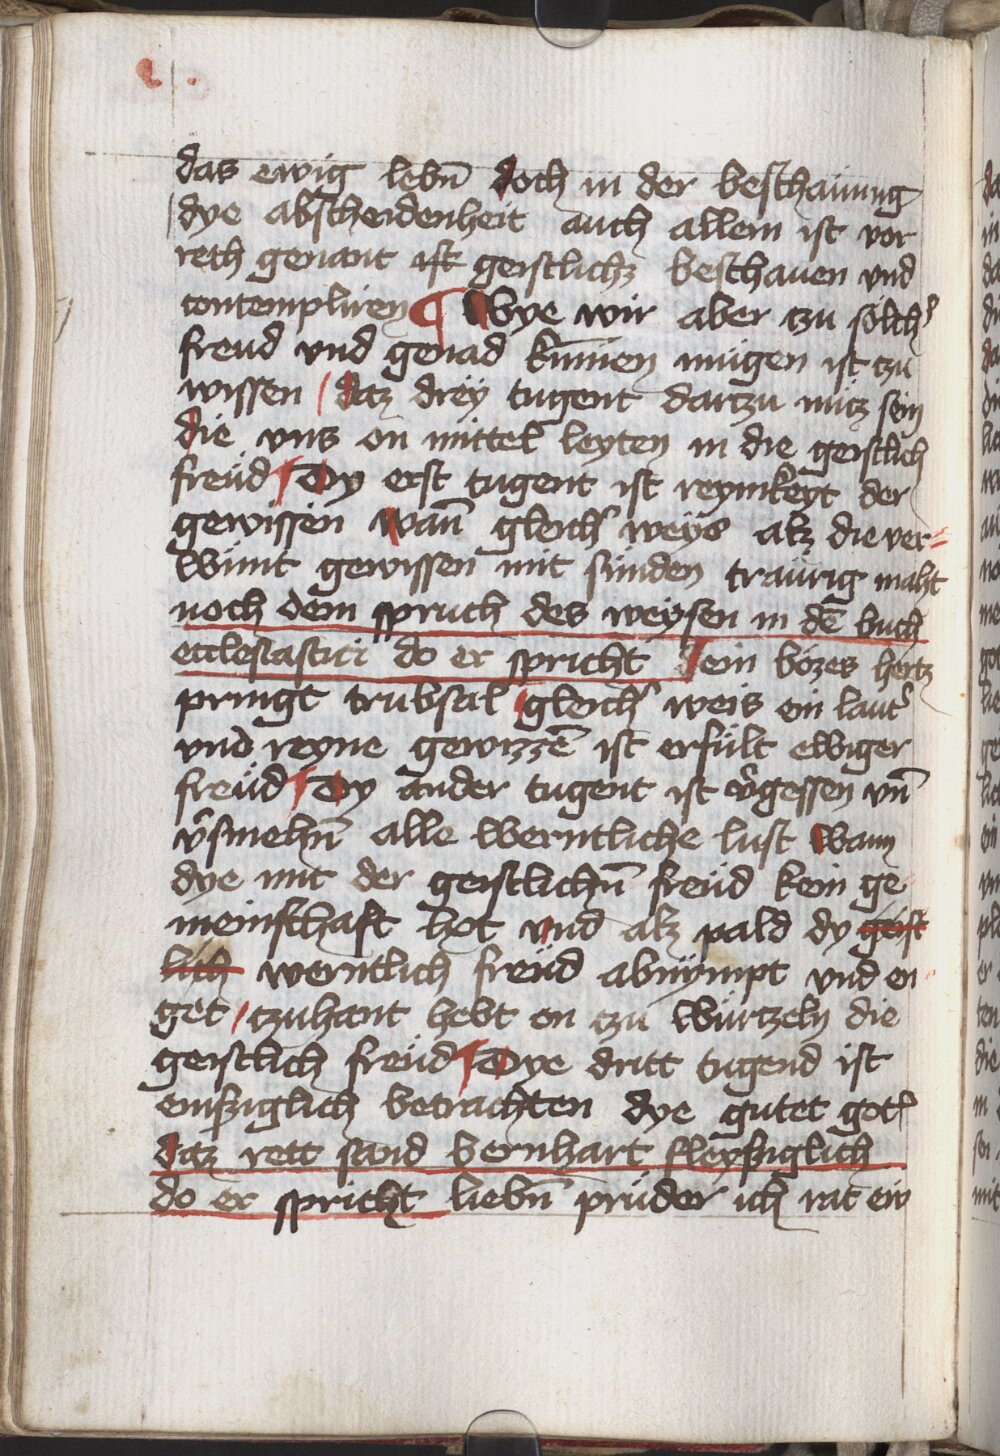 das ewig lebn̄ doch in der beschaüung
dye abscheidenheit auch allein ist vor
reth genant ist geistlichz beschauen vnd
contempliren ¶ Wye wir aber tzu sölch᷑
freud vnd genad kūmen mügen ist tzu
wissen / datz dreÿ tugent dartzu nütz sein
die vns on mittel leyten in die geistlich
freüd ¶ Dy erst tugent ist reynikeyt der
gewissen wan̄ gleich᷑ weys alz die ver=
wünt gewissen mit sünden traürig maht
noch dem spruch des weysen in dē buch
ecclesiastici do er spricht / ein bözes hertz
pringt trubsal / gleich᷑ weis ein laut᷑
vnd reyne gewizzē ist erfült ewiger
freüd ¶ Dy ander tugent ist v᷑gessen vn̄
v᷑smehn̄ alle werntliche lust Wann
dye mit der geistlichn̄ freüd kein ge
meinschaft hot vnd alz pald dy geist
lich werntlich freüd abnÿmpt vnd en
get / tzuhant hebt on tzu würtzeln die
geistlich freüd ¶ Dye dritt tugend ist
einsziglich betrachten dye gutet got᷑
datz rett sand bernhart fleysziglich
do er spricht liebn̄ prüder ich rat ew